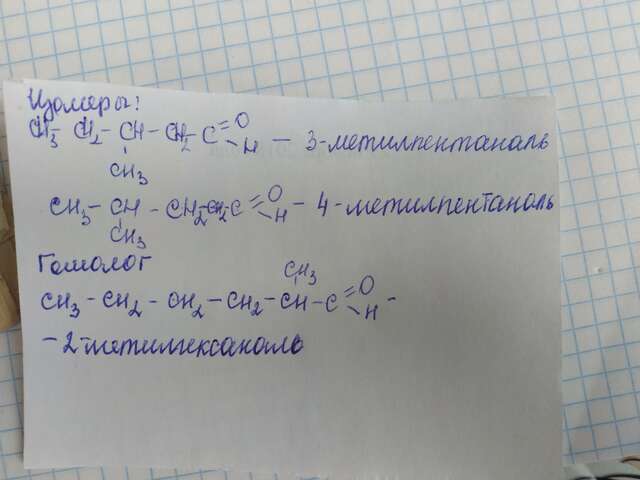 Изомеры:
CH₃ CH₂ – CH – CH₂ C =O – H – 3-метилпентаналь
CH₃
CH₃ – CH – CH₂ CH₂ C =O – H – 4-метилпентаналь
CH₃
Гомолог
CH₃
CH₃ – CH₂ – CH₂ – CH₂ – CH – C =O – H –
– 2-метилгексаналь